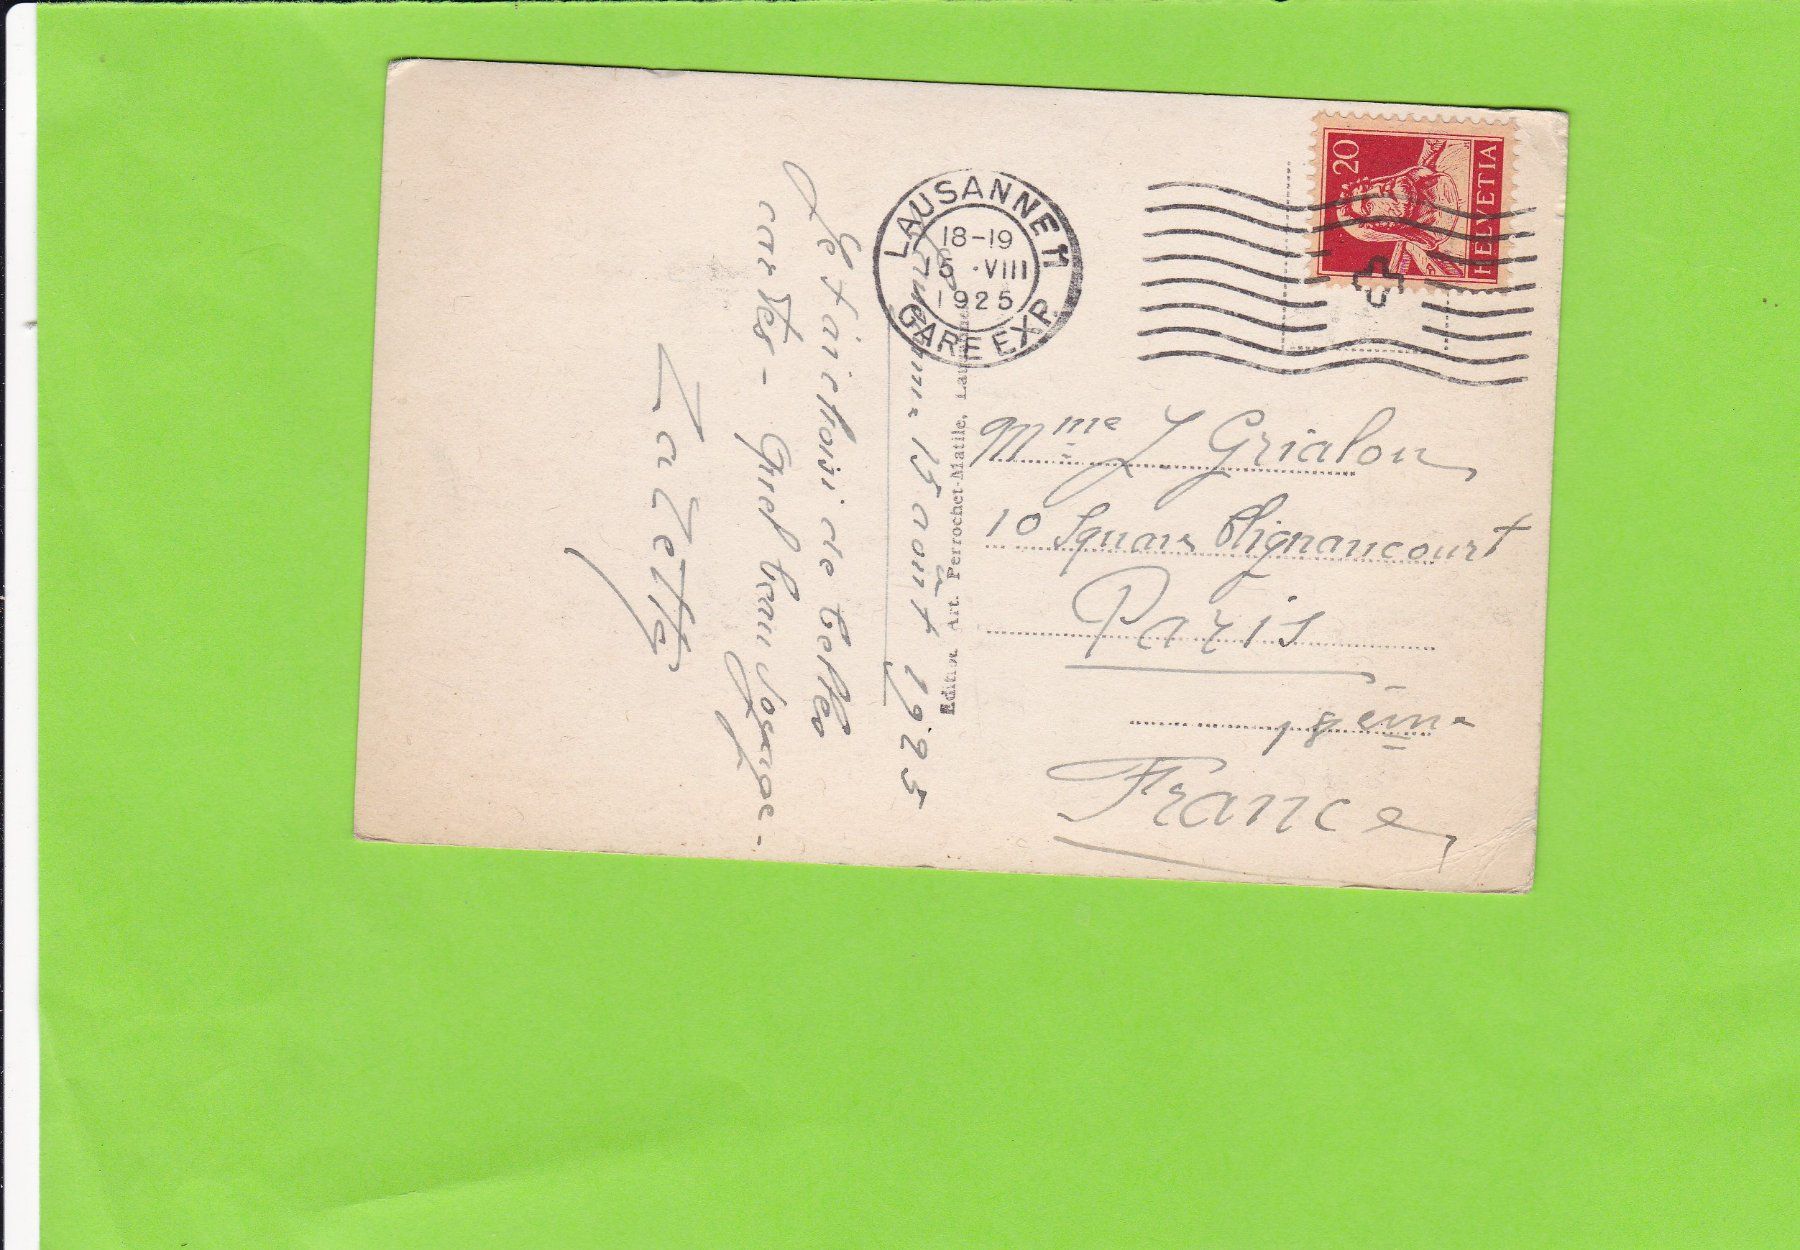 Lausanne 15 août 1925
Je t'ai choisi de belles
cartes - Quel beau voyage -
ZaZetty
Edition Art. Perrochet-Matile, Lausanne
LAUSANNE 1
18-19
15.VIII
1925
GARE EXP.
20
HELVETIA
Mme J Grialou
10 Square Clignancourt
Paris
Seine
France